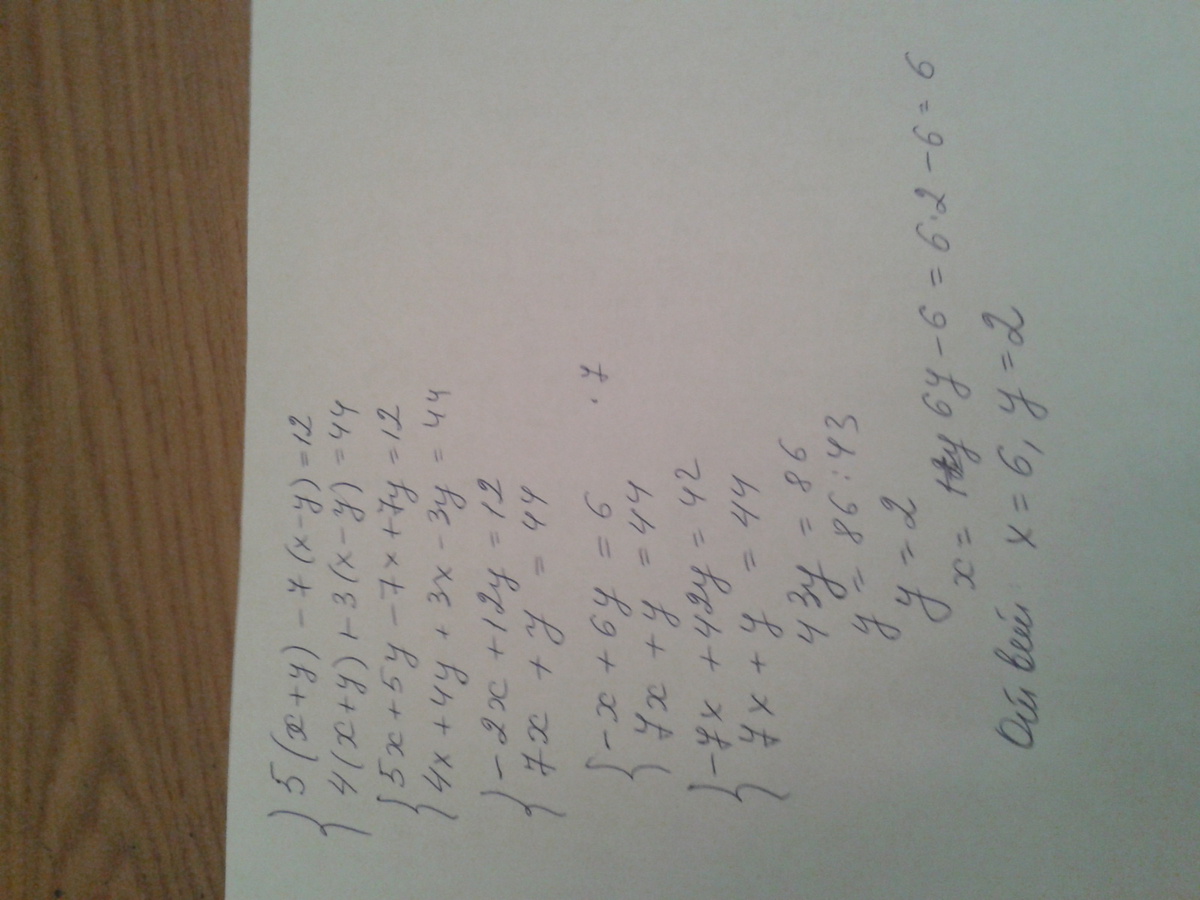 { 5(x+y) - 7(x-y) = 12
4(x+y) + 3(x-y) = 44
{ 5x + 5y - 7x + 7y = 12
4x + 4y + 3x - 3y = 44
{ -2x + 12y = 12
7x + y = 44
{ -x + 6y = 6 · 7
7x + y = 44
{ -7x + 42y = 42
7x + y = 44
43y = 86
y = 86 : 43
y = 2
x = 6y - 6 = 6·2 - 6 = 6
Ответ x = 6, y = 2